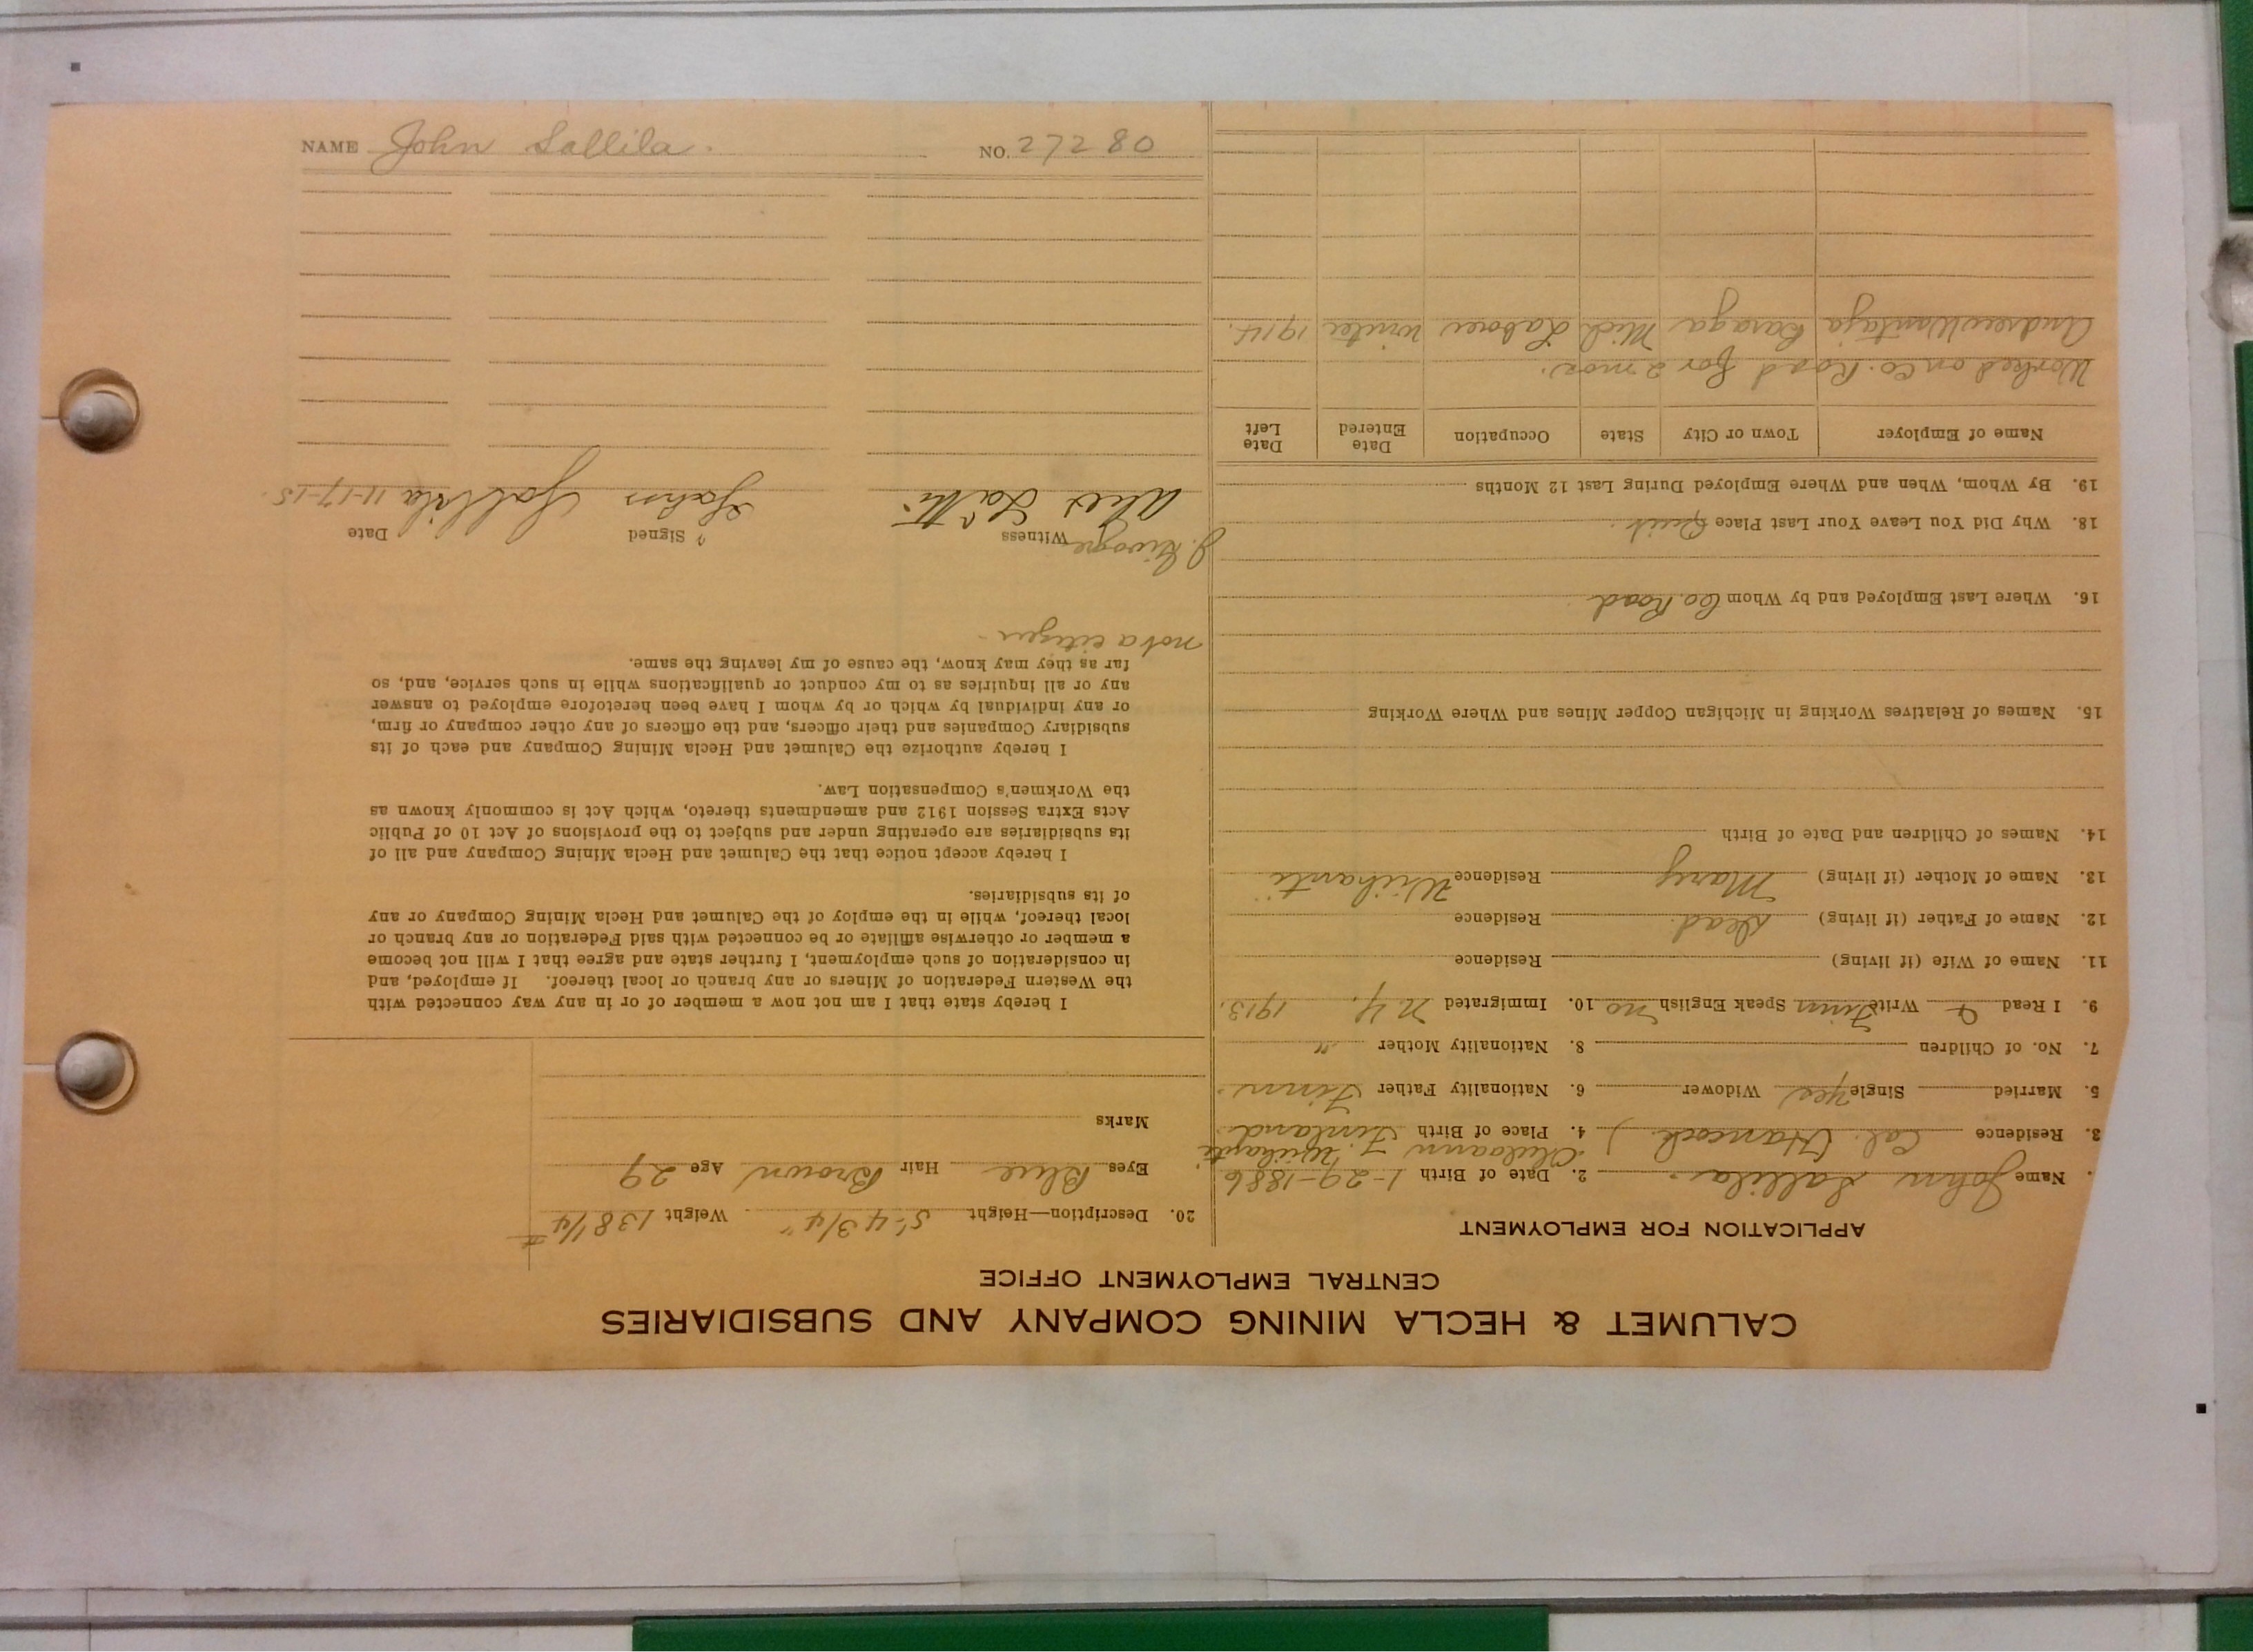 CALUMET & HECLA MINING COMPANY AND SUBSIDIARIES
CENTRAL EMPLOYMENT OFFICE
APPLICATION FOR EMPLOYMENT
. Name John Sallila. 2. Date of Birth 1-29-1886
3. Residence Cal. (Hancock.) 4. Place of Birth Finland.
5. Married Single Yes Widower 6. Nationality Father Finn.
7. No. of Children 8. Nationality Mother "
9. I Read & Write Finn Speak English no 10. Immigrated N.Y. 1913.
11. Name of Wife (if living) Residence
12. Name of Father (if living) Dead. Residence
13. Name of Mother (if living) Mary Residence
14. Names of Children and Date of Birth
15. Names of Relatives Working in Michigan Copper Mines and Where Working
16. Where Last Employed and by Whom Co. Road
18. Why Did You Leave Your Last Place Quit.
19. By Whom, When and Where Employed During Last 12 Months
Name of Employer Town or City State Occupation Date Entered Date Left
Worked on Co. Road for 2 mos.
Andrew Baraga Mich Laborer winter 1914.
20. Description—Height 5' 4 3/4" Weight 138 1/4 #
Eyes Blue Hair Brown Age 29
Marks
I hereby state that I am not now a member of or in any way connected with
the Western Federation of Miners or any branch or local thereof. If employed, and
in consideration of such employment, I further state and agree that I will not become
a member or otherwise affiliate or be connected with said Federation or any branch or
local thereof, while in the employ of the Calumet and Hecla Mining Company or any
of its subsidiaries.
I hereby accept notice that the Calumet and Hecla Mining Company and all of
its subsidiaries are operating under and subject to the provisions of Act 10 of Public
Acts Extra Session 1912 and amendments thereto, which Act is commonly known as
the Workmen's Compensation Law.
I hereby authorize the Calumet and Hecla Mining Company and each of its
subsidiary Companies and their officers, and the officers of any other company or firm,
or any individual by which or by whom I have been heretofore employed to answer
any or all inquiries as to my conduct or qualifications while in such service, and, so
far as they may know, the cause of my leaving the same.
not a citizen -
Witness Signed Date
John Sallila 11-17-15.
NAME John Sallila. NO. 27280